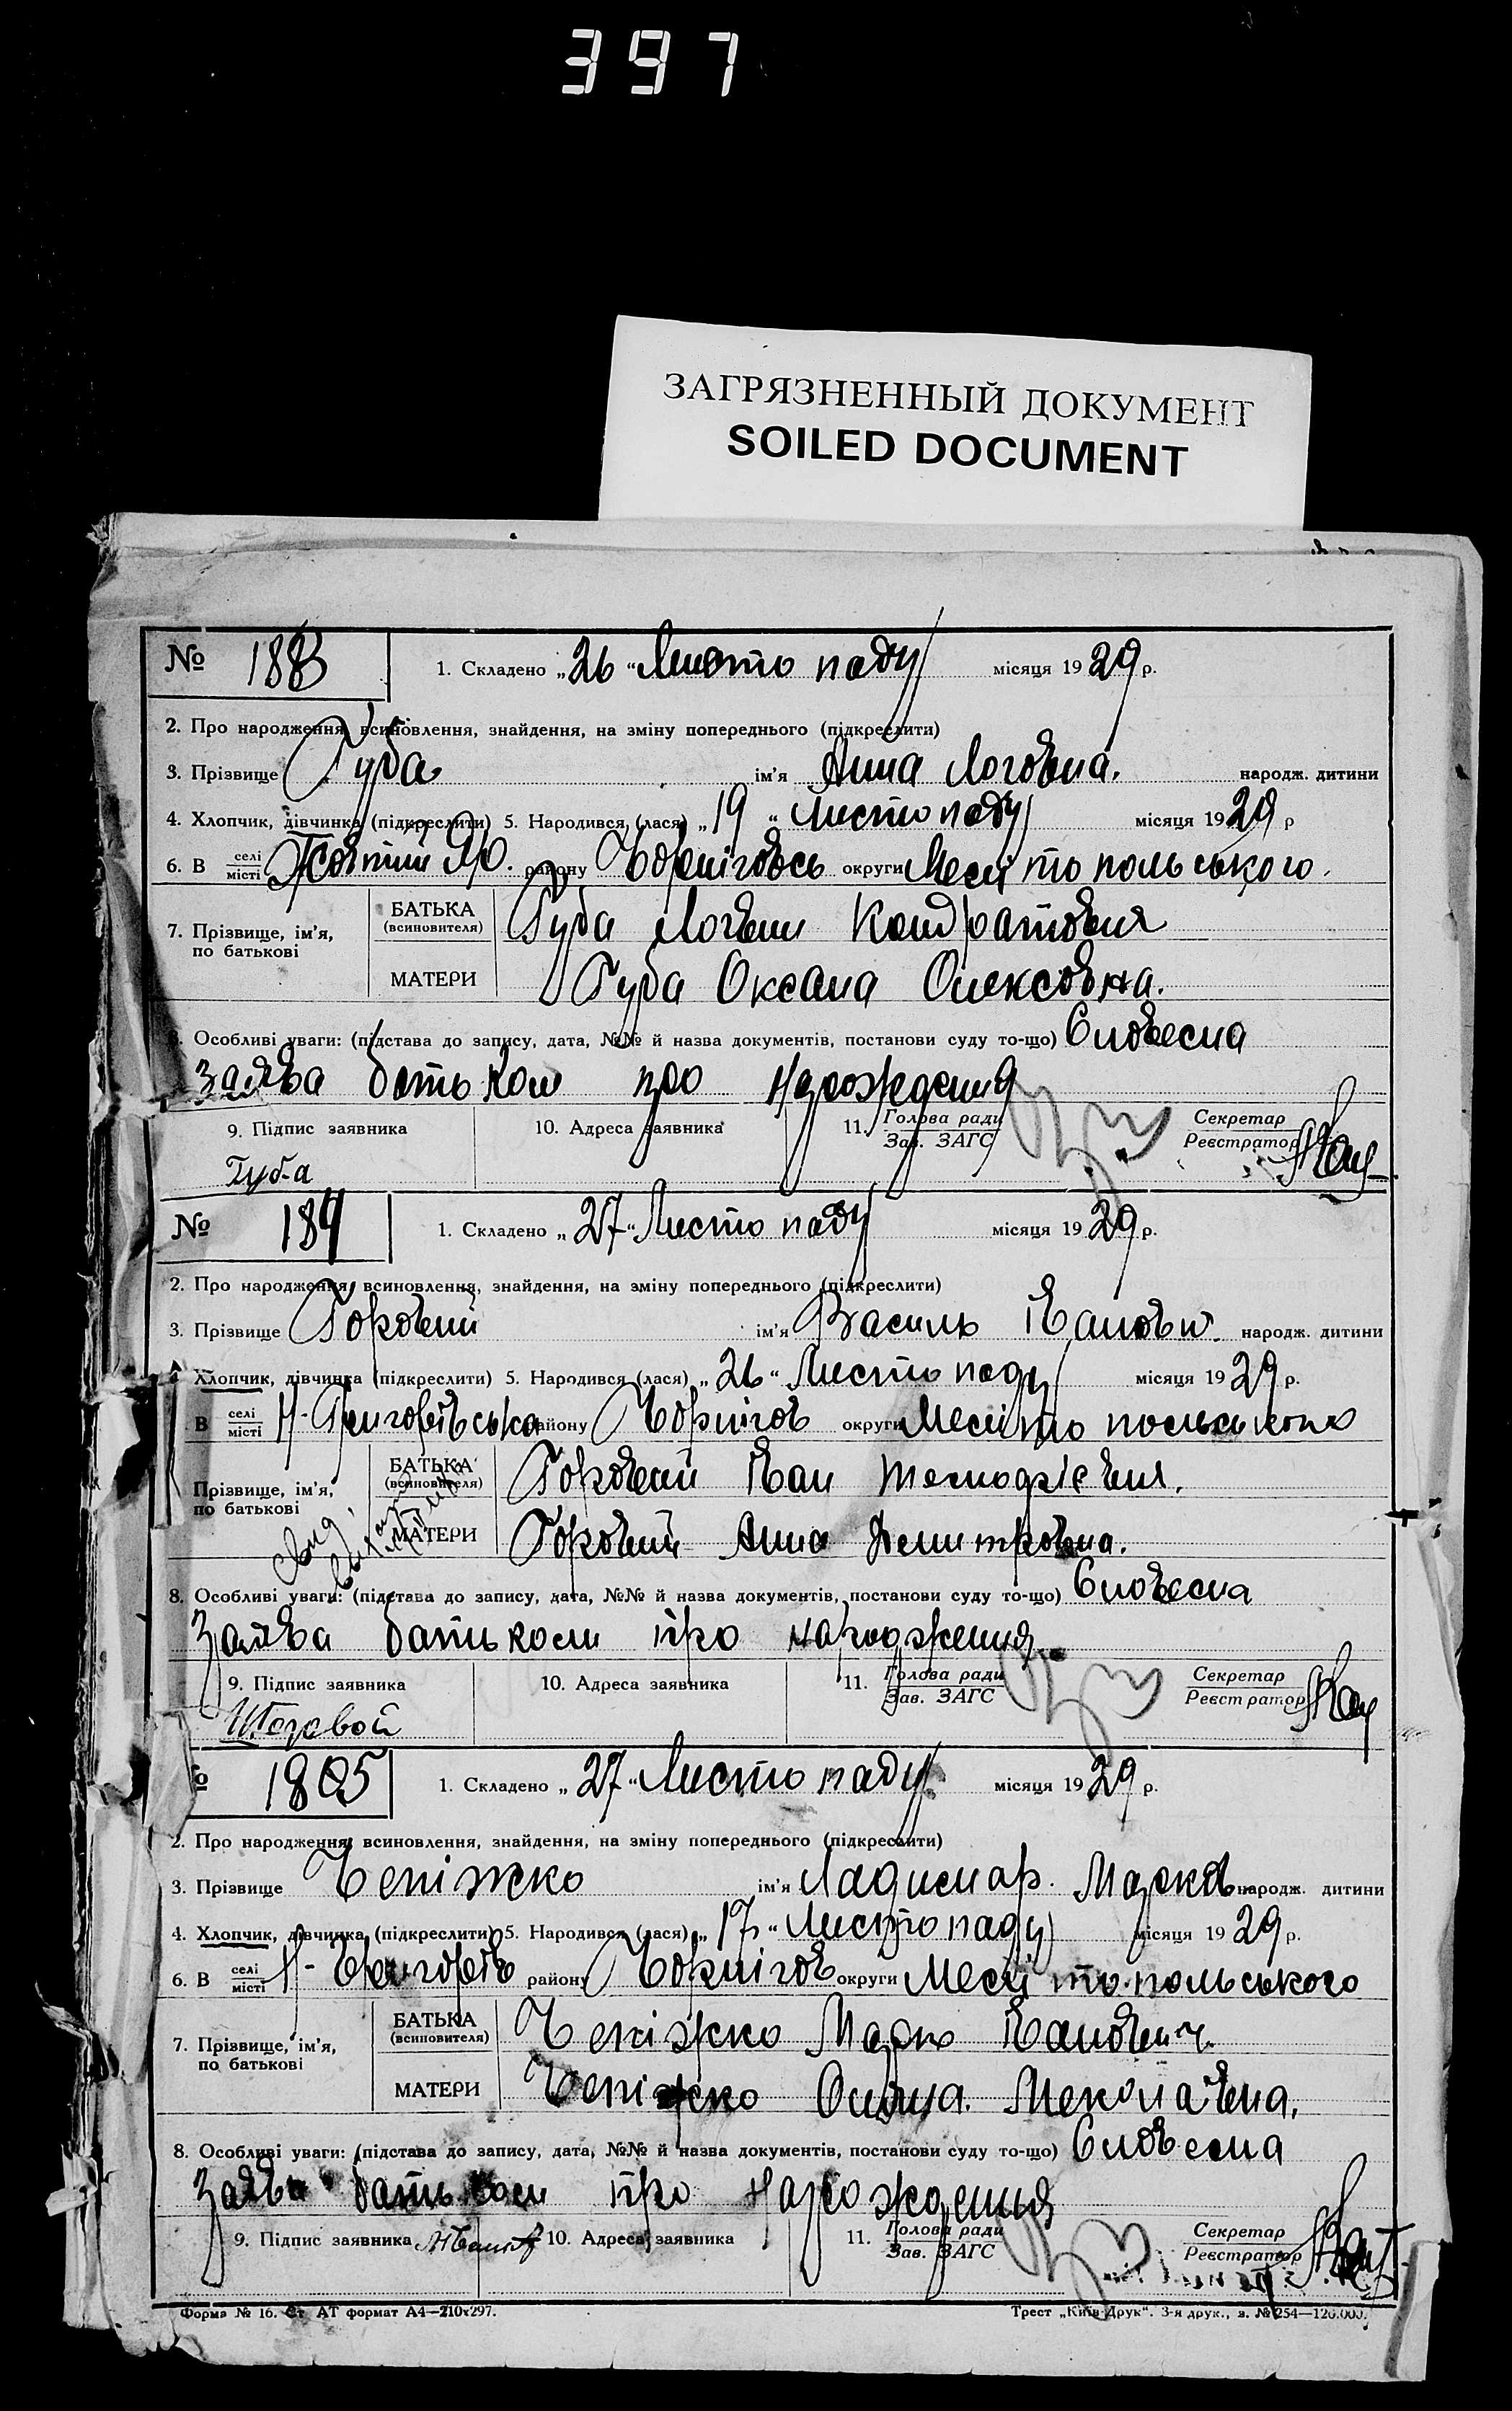 397
ЗАГРЯЗНЕННЫЙ ДОКУМЕНТ
SOILED DOCUMENT
№ 183 1. Складено „26“ Листопаду місяця 1929 р.
2. Про народження, всиновлення, знайдення, на зміну попереднього (підкреслити)
3. Прізвище Губа ім'я Анна Логовна. народж. дитини
4. Хлопчик, дівчинка (підкреслити) 5. Народився (лася) „19“ Листопаду місяця 1929 р
6. В селі/місті району Чорніговсь округи Мелітопольського.
7. Прізвище, ім'я, по батькові
БАТЬКА (всиновителя) Губа Логвин Кондратовия
МАТЕРИ Губа Оксана Олексовна.
8. Особливі уваги: (підстава до запису, дата, №№ й назва документів, постанови суду то-що) Словесна
заява батьком про нарождения
9. Підпис заявника 10. Адреса заявника 11. Голова ради/Зав. ЗАГС Секретар/Реєстратор
Губа
№ 184 1. Складено „27“ Листопаду місяця 1929 р.
2. Про народження, всиновлення, знайдення, на зміну попереднього (підкреслити)
3. Прізвище ім'я Василь Іванов. народж. дитини
4. Хлопчик, дівчинка (підкреслити) 5. Народився (лася) „26“ Листопаду місяця 1929 р.
В селі/місті Н-Григорівська району Чорнігов округи Мелітопольського
Прізвище, ім'я, по батькові
БАТЬКА (всиновителя) Іван
МАТЕРИ Анна Демитровна.
8. Особливі уваги: (підстава до запису, дата, №№ й назва документів, постанови суду то-що) Словесна
Заява батьком про народження
9. Підпис заявника 10. Адреса заявника 11. Голова ради/Зав. ЗАГС Секретар/Реєстратор
№ 185 1. Складено „27“ Листопаду місяця 1929 р.
2. Про народження, всиновлення, знайдення, на зміну попереднього (підкреслити)
3. Прізвище Чепіжко ім'я Ладимар. Марков народж. дитини
4. Хлопчик, дівчинка (підкреслити) 5. Народився (лася) „17“ Листопаду місяця 1929 р.
6. В селі/місті району Чорнігов округи Мелітопольського
7. Прізвище, ім'я, по батькові
БАТЬКА (всиновителя) Чепіжко Марко Іванович.
МАТЕРИ Чепіжко Меколаевна.
8. Особливі уваги: (підстава до запису, дата, №№ й назва документів, постанови суду то-що) Словесна
Заява батьком про народження
9. Підпис заявника 10. Адреса заявника 11. Голова ради/Зав. ЗАГС Секретар/Реєстратор
Форма № 16. Ст. АТ формат А4—210x297. Трест „Київ-Друк“. 3-я друк., з. № 254—120.000.